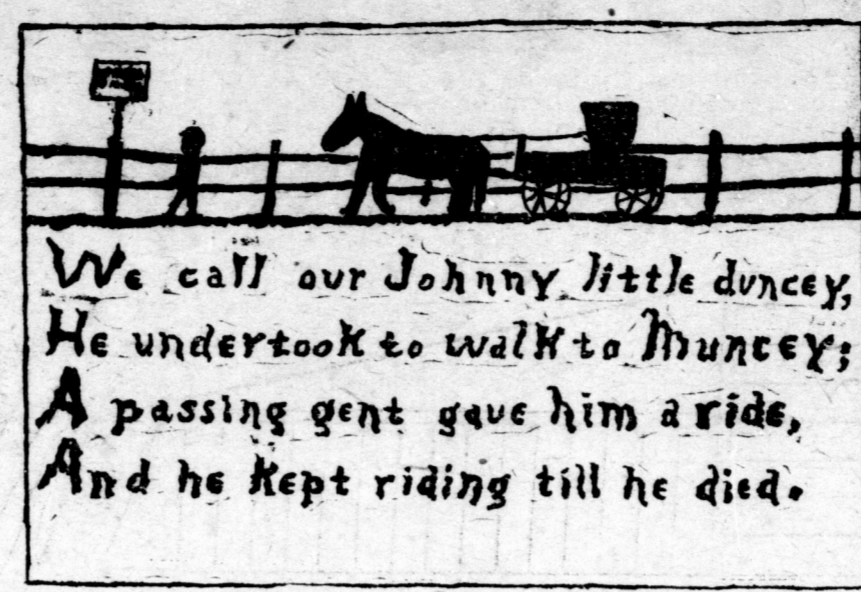 We call our Johnny little duncey,
He undertook to walk to Muncey;
A passing gent gave him a ride,
And he kept riding till he died.